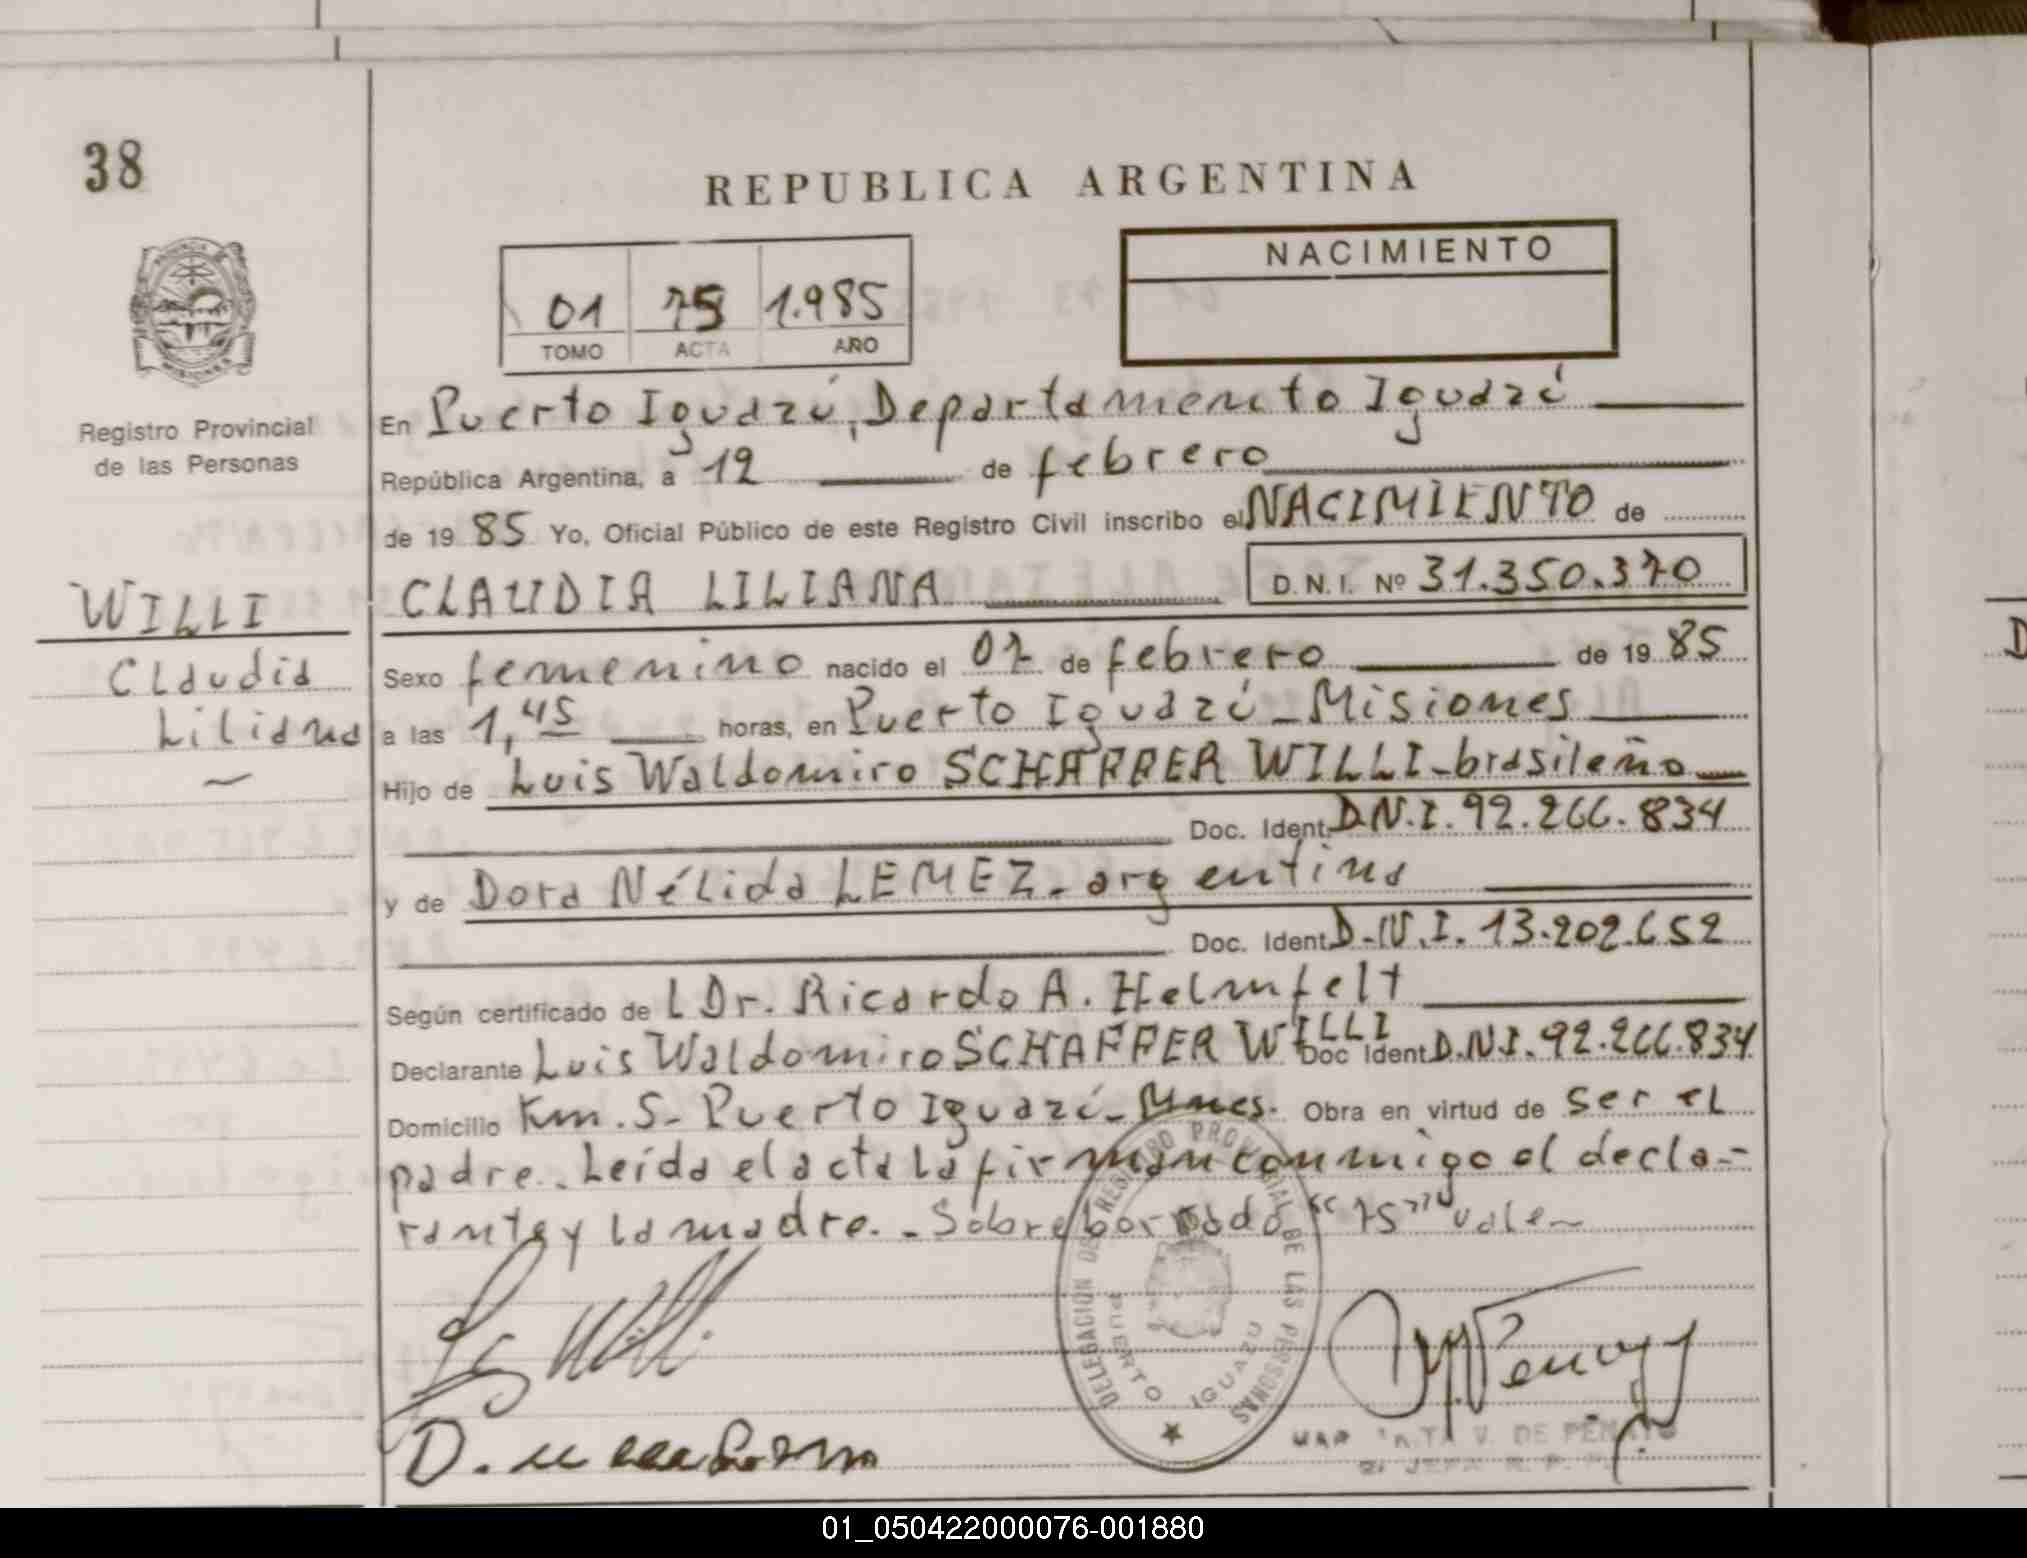 38
REPUBLICA ARGENTINA
NACIMIENTO
01 75 1.985
TOMO ACTA AÑO
Registro Provincial
de las Personas
En Puerto Iguazú, Departamento Iguazú
República Argentina, a 12 de febrero
de 19 85 Yo, Oficial Público de este Registro Civil inscribo el NACIMIENTO de
WILLI
Claudia
Liliana
CLAUDIA LILIANA D.N.I. Nº 31.350.370
Sexo femenino nacido el 07 de febrero de 19 85
a las 1,45 horas, en Puerto Iguazú - Misiones
Hijo de Luis Waldomiro SCHAFFER WILLI - brasileño
Doc. Ident. D.N.I. 92.266.834
y de Dora Nélida LEMEZ - argentina
Doc. Ident. D.N.I. 13.202.652
Según certificado de L Dr. Ricardo A. Helmfelt
Declarante Luis Waldomiro SCHAFFER WILLI Doc Ident D.N.I. 92.266.834
Domicilio Km. 5 - Puerto Iguazú - Mnes. Obra en virtud de ser el
padre. Leída el acta la firman conmigo el decla-
rante y la madre. - Sobre borrado "75" vale -
DELEGACION DEL REGISTRO PROVINCIAL DE LAS PERSONAS
PUERTO IGUAZU
V. DE PENAYO
JEFA R. P. P.
01_050422000076-001880